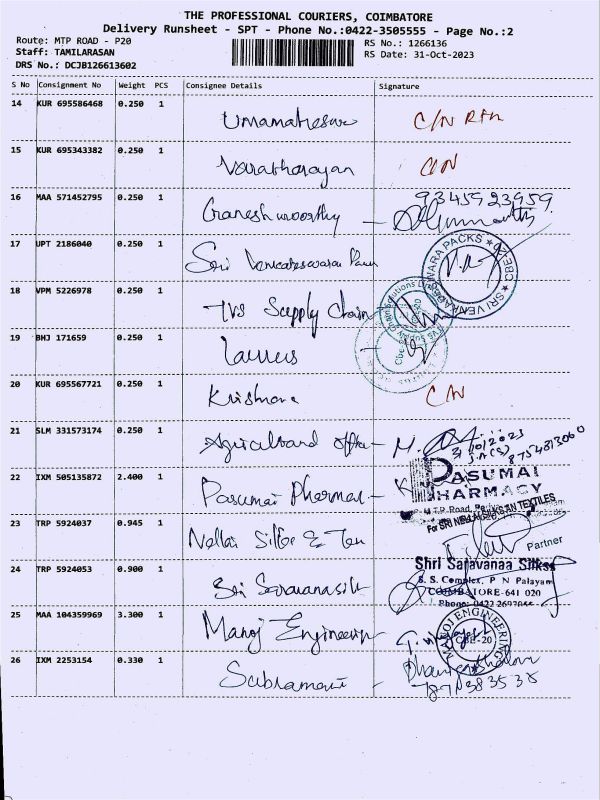 THE PROFESSIONAL COURIERS, COIMBATORE
Delivery Runsheet - SPT - Phone No.:0422-3505555 - Page No.:2
Route: MTP ROAD - P20
RS No.: 1266136
Staff: TAMILARASAN
RS Date: 31-Oct-2023
DRS No.: DCJB126613602
S No Consignment No Weight PCS Consignee Details Signature
14 KUR 695586468 0.250 1 Umamaheswr C/N RTN
15 KUR 695343382 0.250 1 Varatharayan C/N
16 MAA 571452795 0.250 1 Ganesh moorthy - 9345923959
17 UPT 2186040 0.250 1 Sri Venkateswara
SRI VENKATESWARA PACKS
18 VPM 5226978 0.250 1 TVS Supply Chain
19 BHJ 171659 0.250 1 Laurus
20 KUR 695567721 0.250 1 Krishna C/N
21 SLM 331573174 0.250 1 Agricultural office - 31/10/2023
8754813060
22 IXM 505135872 2.400 1 Pasumai Pharmac -
PASUMAI
PHARMACY
M.T.P. Road,
For SRI NELLAI TEXTILES
23 TRP 5924037 0.945 1 Nellai Silks & Tex
Partner
24 TRP 5924053 0.900 1 Sri Saravanasilk
Shri Saravanaa Silkss
S. S. Complex, P N Palayam
COIMBATORE-641 020
Phone: 0422
25 MAA 104359969 3.300 1 Manoj Engineerin
MANOJ ENGINEERING
CBE-20
26 IXM 2253154 0.330 1 Subramani -